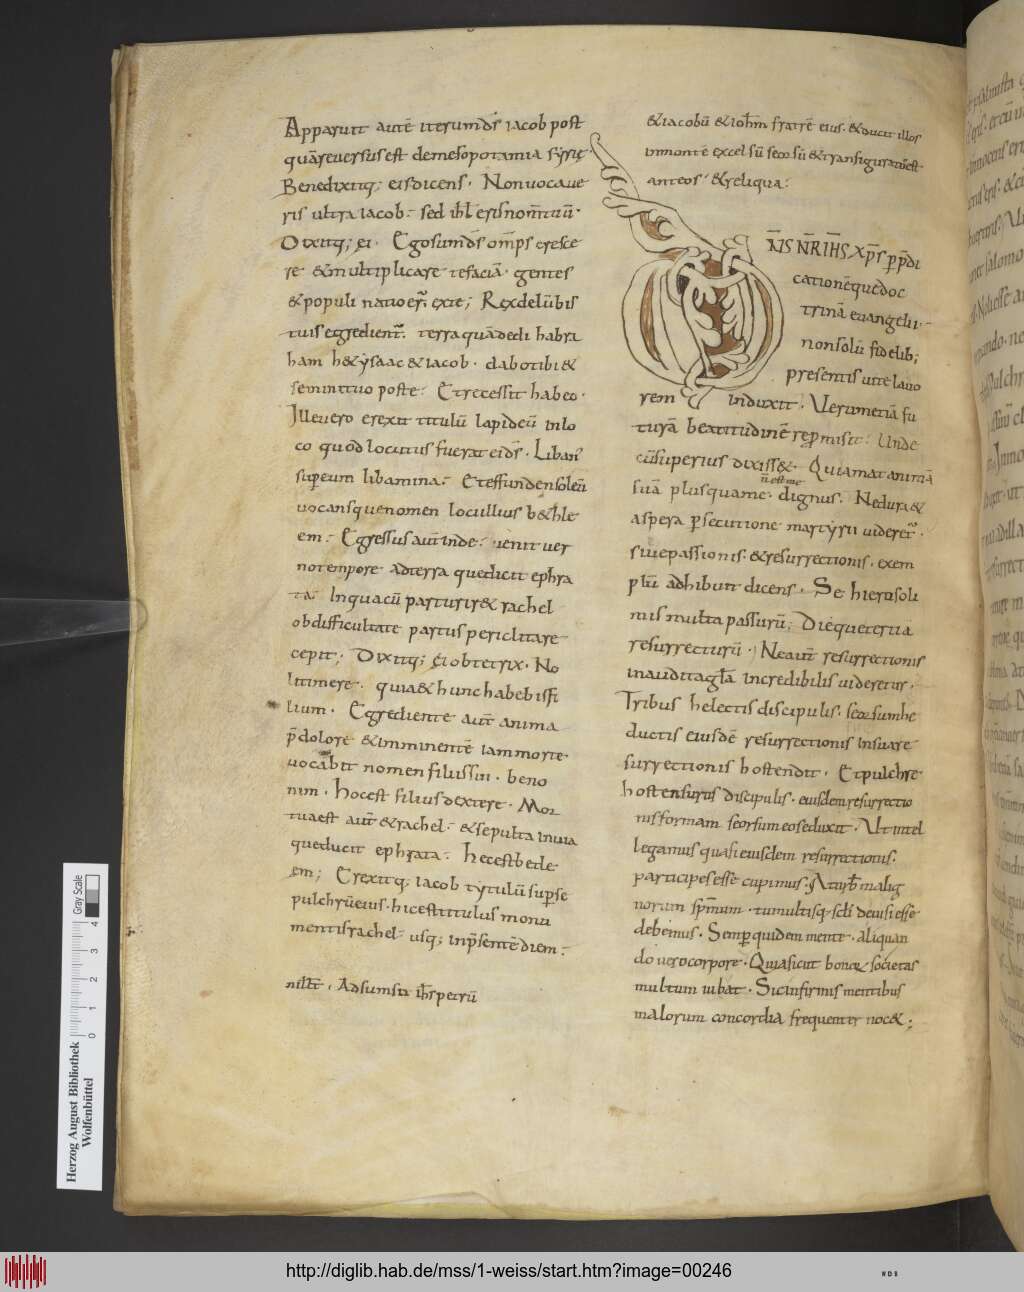 Apparuit autē iterum dſ iacob poſt
quā reuerſuſ eſt demeſopotamia ſyrię.
Benedixitq; eiſ dicenſ. Non uocaue
riſ ultra iacob. ſed iſrl eriſ nom̄ tuū.
Dixitq; ei. Ego ſum dſ omp̄ſ creſce
re & multiplicare te faciā. genteſ
& populi natio ert̄ ex te; Rex de lūbiſ
tuiſ egredient̄. terra quā dedi habra
ham h& yſaac & iacob. dabo tibi &
ſemini tuo poſt te. Et receſſit hab eo.
Ille uero erexit titulū lapideū in lo
co quo locutuſ fuerat ei dſ. Libanſ
ſuper eum libamina. Et effundenſ oleū
uocanſque nomen loci illiuſ b&hle
em. Egreſſuſ aut̄ inde. uenit uer
no tempore ad terra que ducit ephra
ta. In qua cū parturir& rachel
ob difficultate partuſ periclitare
cepit; Dixitq; ei obtetrix. No
li timere. quia & hunc habebiſ fi
lium. Egrediente aut̄ anima
p̄ dolore & imminentē iam morte.
uocabit nomen filii ſui. beno
nim. Hoc eſt filiuſ dextere. Mor
tua eſt aut̄ & rachel. & ſepulta in uia
que ducit ephrata. Hec eſt betle
em; Erexitq; iacob tytulū ſuper ſe
pulchrū eiuſ. hic eſt titulus monu
menti rachel uſq; in p̄ſentē diem.
In illt̄. Adſumſit ihſ petrū
& iacobū & ioh̄m fratrē eiuſ. & ducit illoſ
in monte excelſū ſeorſū & tranſfiguratuſ eſt
ante eoſ. & reliqua.
DN̄S NR̄ IHS XP̄S p̄ p̄di
cationē que doc
trinā euangelii.
non ſolū fidelib;
preſentiſ uite labo
rem induxit. Verum etiā fu
turā beatitudinē repromiſit. Unde
cū ſuperiuſ dixiſſ&. Qui amat animā
ñ eſt me
ſuā pluſqua me. dignuſ. Ne dura &
aſpera pſecutione martyrii uideret̄.
ſiue paſſioniſ & reſurrectioniſ. exem
plū adhibuit dicenſ. Se hieruſoli
miſ multa paſſurū; Die que tertia
reſurrecturū. Ne aut̄ reſurrectioniſ
inaudita gl̄a incredibiliſ uideretur.
Tribuſ h electiſ diſcipuliſ. ſeorſum he
ductiſ eiuſdē reſurrectioniſ inſuare
ſurrectioniſ hoſtendit. Et pulchre
hoſtenſuruſ diſcipuliſ. eiuſdem reſurrectio
niſ formam ſeorſum eoſ eduxit. Ut intel
legamuſ quaſi eiuſdem reſurrectioniſ.
participeſ eſſe cupimuſ. A turb̄ malig
norum ſpm̄um. tumultiſq; ſcl̄i deuiſi eſſe
debemuſ. Semper quidem mente. aliquan
do uero corpore. Quia ſicut bonoꝝ ſocietaſ
multum iubat. Sic infirmiſ mentibuſ
malorum concordia frequenter noc&.
Herzog August Bibliothek
Wolfenbüttel
Gray Scale
0 1 2 3 4
http://diglib.hab.de/mss/1-weiss/start.htm?image=00246